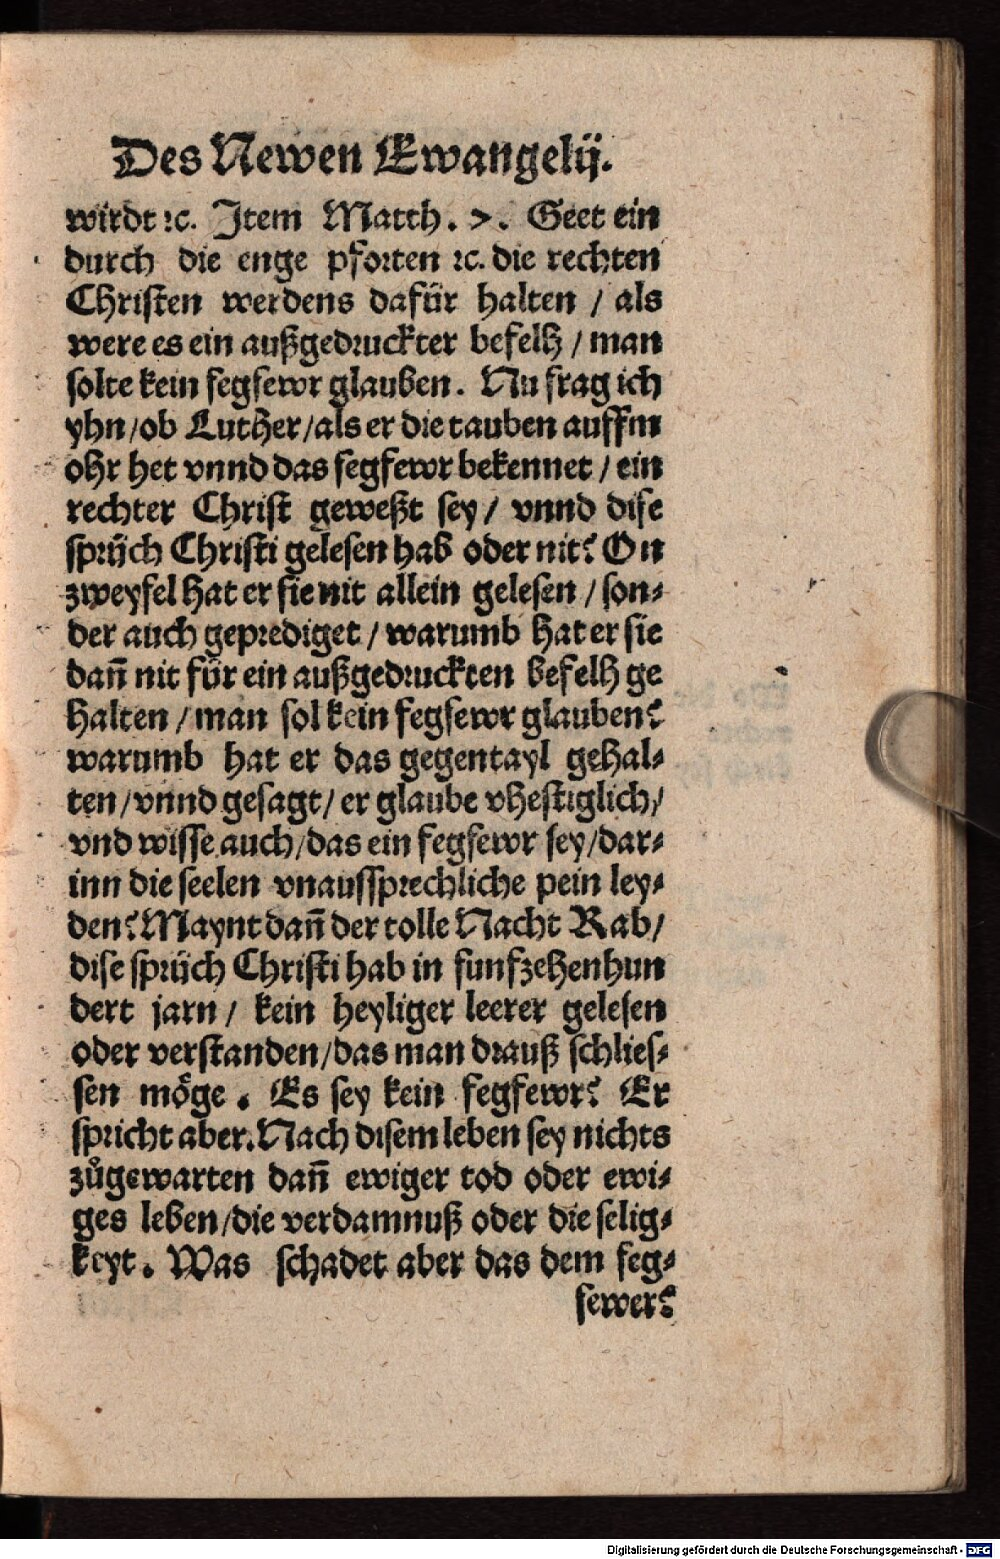 Des Newen Ewangelij.
wirdt ꝛc. Item Matth. 7. Geet ein
durch die enge pforten ꝛc. die rechten
Christen werdens dafür halten / als
were es ein außgedruckter befelh / man
solte kein fegfewr glauben. Nu frag ich
yhn / ob Luther / als er die tauben auffm
ohr het vnnd das fegfewr bekennet / ein
rechter Christ geweßt sey / vnnd dise
sprüch Christi gelesen hab oder nit? On
zweyfel hat er sie nit allein gelesen / son⸗
der auch geprediget / warumb hat er sie
dañ nit für ein außgedruckten befelh ge
halten / man sol kein fegfewr glauben?
warumb hat er das gegentayl gehal⸗
ten / vnnd gesagt / er glaube vhestiglich /
vnd wisse auch / das ein fegfewr sey / dar⸗
inn die seelen vnaussprechliche pein ley⸗
den? Maynt dañ der tolle Nacht Rab /
dise sprüch Christi hab in funfzehenhun
dert jarn / kein heyliger leerer gelesen
oder verstanden / das man drauß schlies⸗
sen möge. Es sey kein fegfewr? Er
spricht aber. Nach disem leben sey nichts
zůgewarten dañ ewiger tod oder ewi⸗
ges leben / die verdamnuß oder die selig⸗
keyt. Was schadet aber das dem feg⸗
fewer?
Digitalisierung gefördert durch die Deutsche Forschungsgemeinschaft - DFG